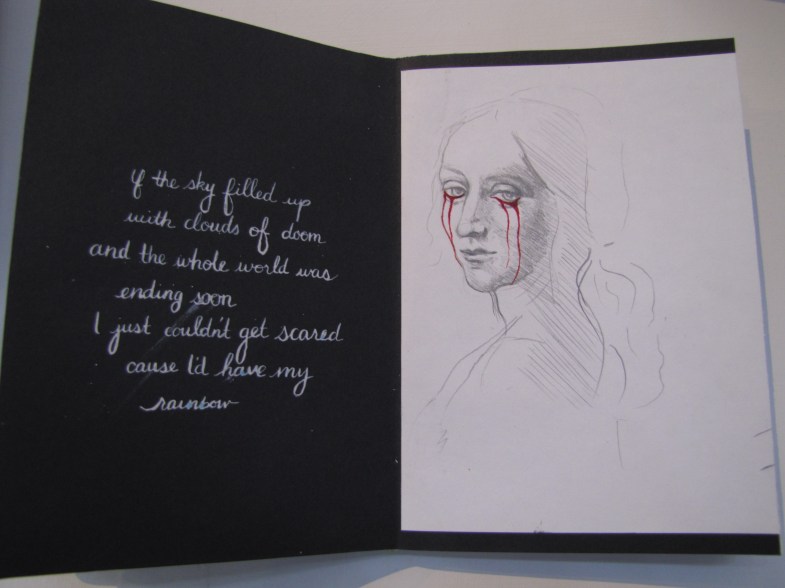 If the sky filled up
with clouds of doom
and the whole world was
ending soon
I just couldn't get scared
cause I'd have my
rainbow